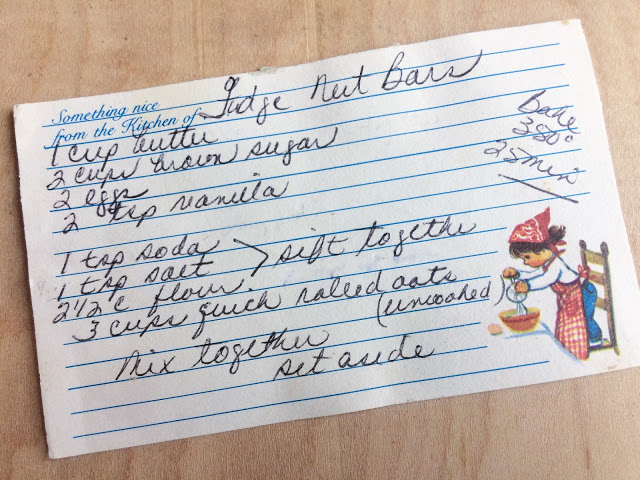 Something nice
from the Kitchen of Fudge Nut Bars
1 cup butter
2 cups brown sugar
2 eggs
2 tsp vanilla
Bake
350°
25 min
1 tsp soda
1 tsp salt > sift together
2 1/2 c flour
3 cups quick rolled oats
(uncooked
Mix together
set aside